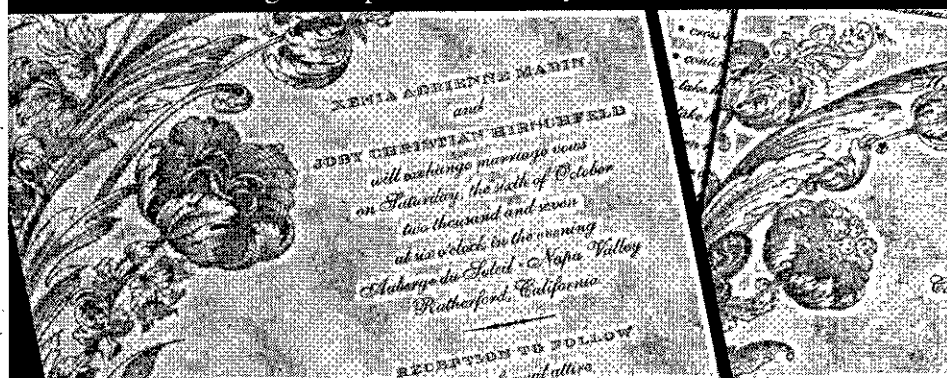 XENIA ADRIENNE MADIN
and
JOBY CHRISTIAN HIRSCHFELD
will exchange marriage vows
on Saturday, the sixth of October
two thousand and seven
at six o'clock in the evening
Auberge du Soleil - Napa Valley
Rutherford, California
RECEPTION TO FOLLOW
attire
• cross